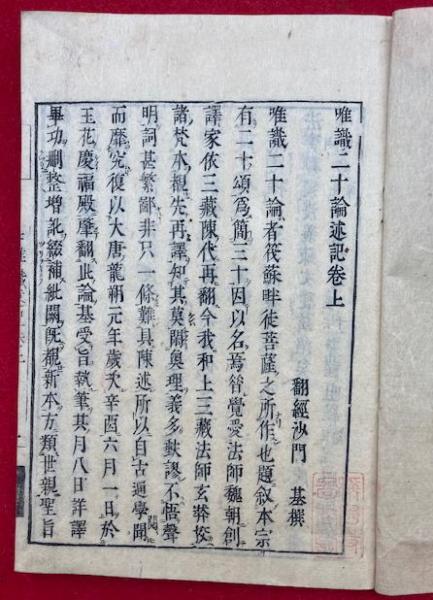 唯識二十論述記卷上
翻經沙門　基撰
唯識二十論者筏蘇畔徒菩薩之所作也題叙本宗
有二十頌爲簡三十因以名焉昔覺愛法師魏朝創
譯家依三藏陳代再翻今我和上三藏法師玄奘挍
諸梵本覩先再譯知其莫閑奧理義多缺謬不悟聲
明詞甚繁鄙非只一條難具陳述所以自古通學聞
而靡究復以大唐龍朔元年歲次辛酉六月一日於
玉花慶福殿肇翻此論基受旨執筆其月八日詳譯
畢功刪整增訛綴補紕闕既覩新本方類世親聖旨